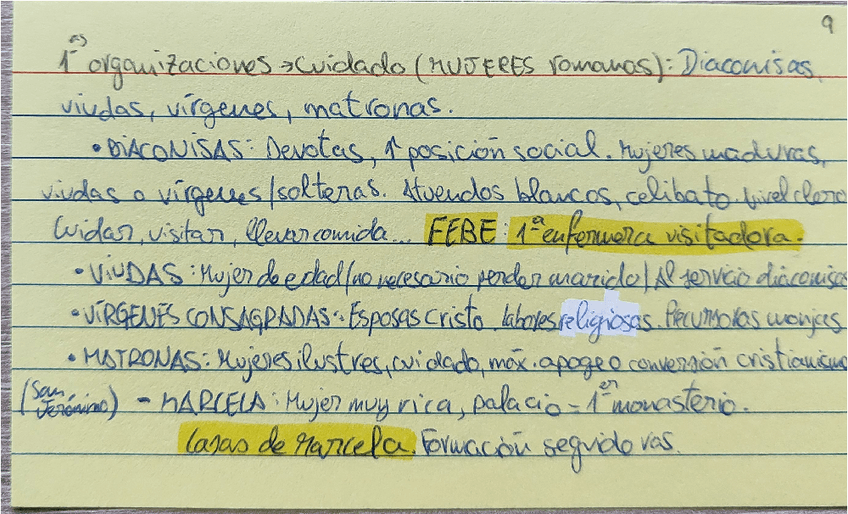 9
1ªˢ organizaciones → cuidado (MUJERES romanas): Diaconisas,
viudas, vírgenes, matronas.
• DIACONISAS: Devotas, ↑ posición social. Mujeres maduras,
viudas o vírgenes/solteras. Atuendos blancos, celibato. Nivel clero
Cuidar, visitar, llevar comida... FEBE: 1ª enfermera visitadora.
• VIUDAS: Mujer de edad (no necesario perder marido) Al servicio diaconisas
• VÍRGENES CONSAGRADAS: Esposas Cristo. labores religiosas. Precursoras monjas
• MATRONAS: Mujeres ilustres, cuidado, máx. apogeo conversión cristianismo
(San Jerónimo) - MARCELA: Mujer muy rica, palacio = 1er monasterio.
Casas de Marcela. Formación seguidoras.